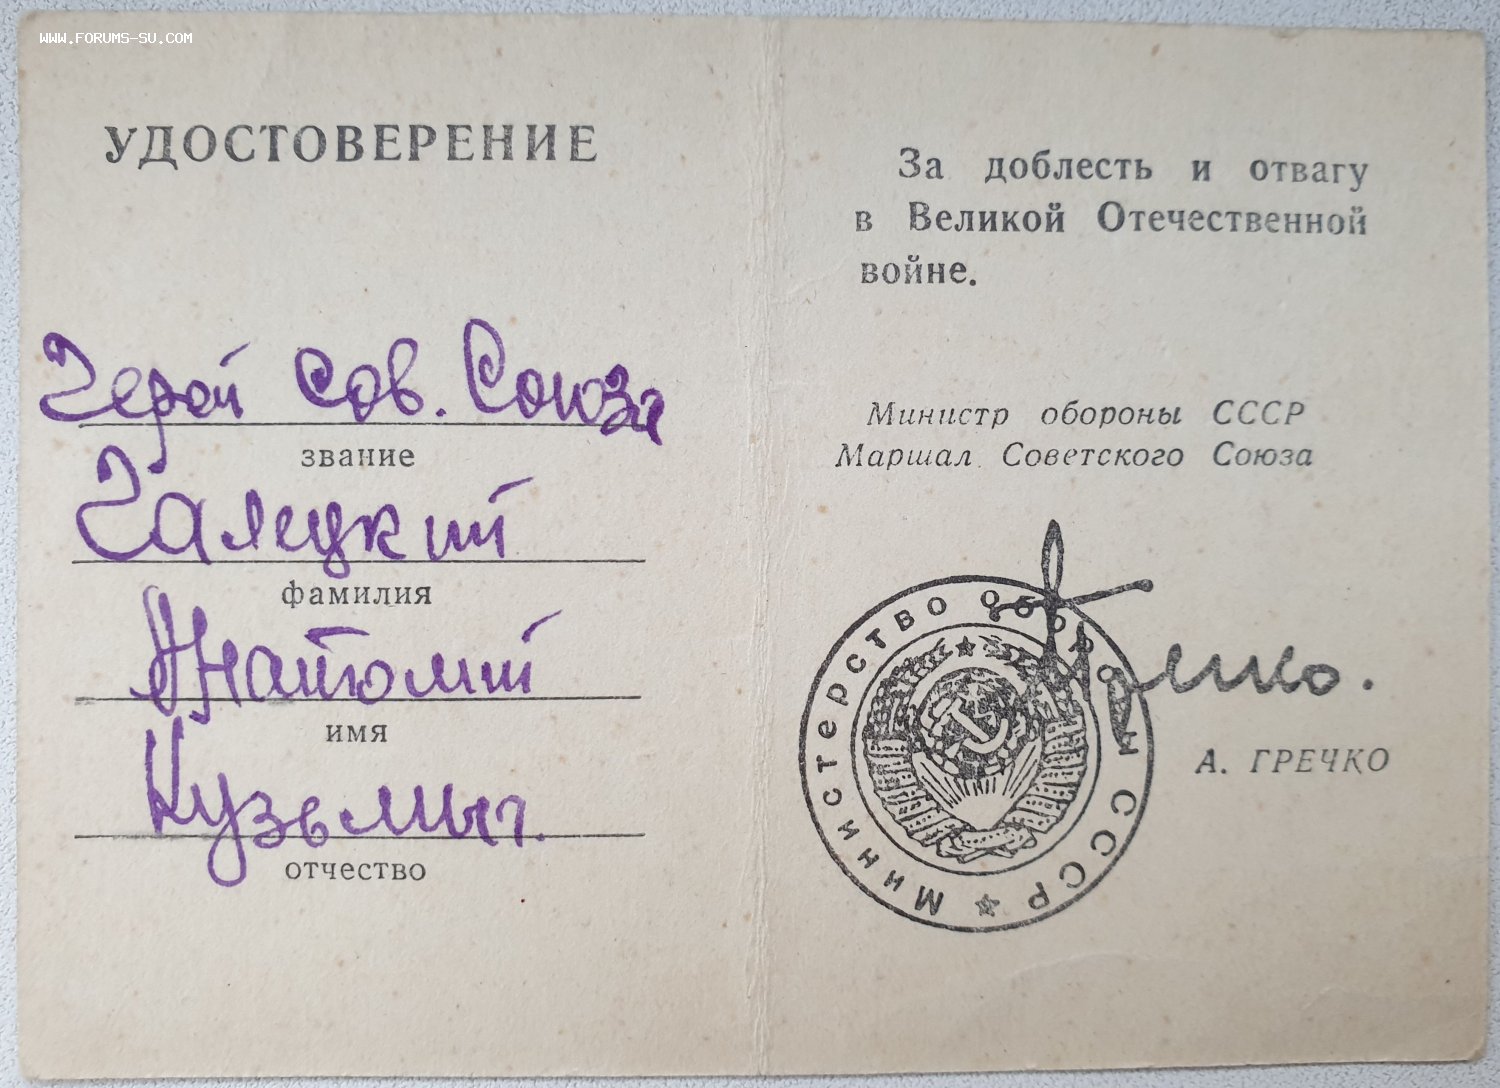 WWW.FORUMS-SU.COM
УДОСТОВЕРЕНИЕ
Герой Сов. Союза
звание
Галецкий
фамилия
Анатолий
имя
Кузьмич.
отчество
За доблесть и отвагу
в Великой Отечественной
войне.
Министр обороны СССР
Маршал Советского Союза
Гречко.
Министерство Обороны СССР
А. ГРЕЧКО